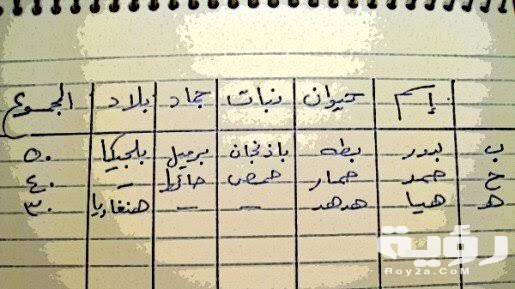 إسم حيوان نبات جماد بلاد المجموع
ب بدر بطه باذنجان برميل بلجيكا ٥٠
ح حمد حمار حمص حائط - ٤٠
ه هيا هدهد - - هنغاريا ٣٠
رؤية
Roy2a.CoM